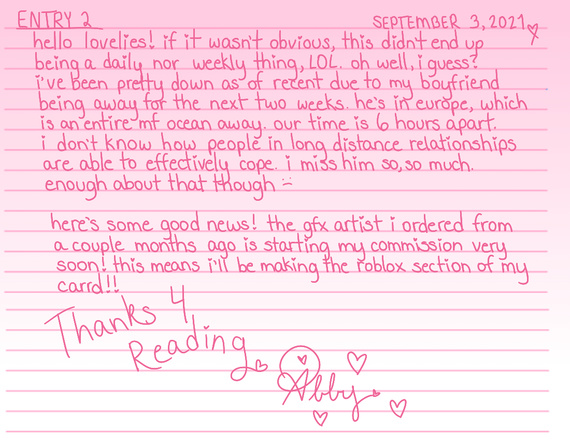 ENTRY 2
SEPTEMBER 3, 2021
hello lovelies! if it wasn't obvious, this didn't end up
being a daily nor weekly thing, LOL. oh well, i guess?
i've been pretty down as of recent due to my boyfriend
being away for the next two weeks. he's in europe, which
is an entire mf ocean away. our time is 6 hours apart.
i don't know how people in long distance relationships
are able to effectively cope. i miss him so, so much.
enough about that though :-
here's some good news! the gfx artist i ordered from
a couple months ago is starting my commission very
soon! this means i'll be making the roblox section of my
carrd!!
Thanks 4
Reading
Abby